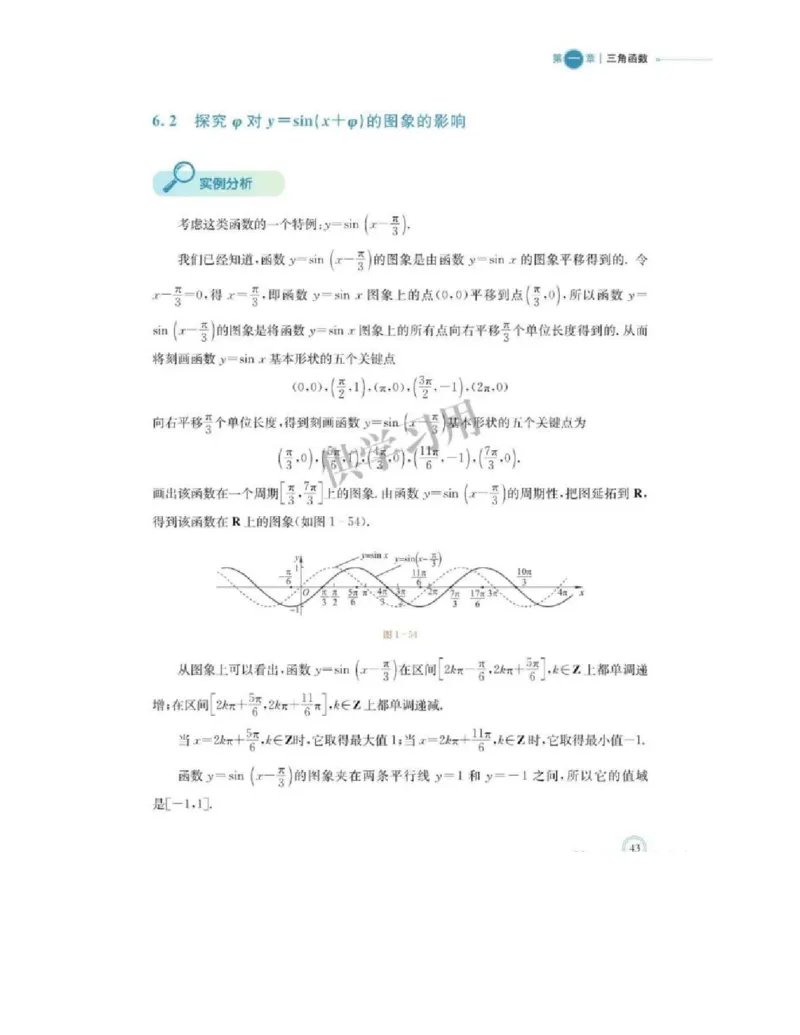 第一章 | 三角函数
6.2 探究 φ 对 y=sin(x+φ)的图象的影响
实例分析
考虑这类函数的一个特例:y=sin(x-π/3).
我们已经知道,函数 y=sin(x-π/3)的图象是由函数 y=sin x 的图象平移得到的. 令
x-π/3=0,得 x=π/3,即函数 y=sin x 图象上的点(0,0)平移到点(π/3,0),所以函数 y=
sin(x-π/3)的图象是将函数 y=sin x 图象上的所有点向右平移π/3个单位长度得到的. 从而
将刻画函数 y=sin x 基本形状的五个关键点
(0,0),(π/2,1),(π,0),(3π/2,-1),(2π,0)
向右平移π/3个单位长度,得到刻画函数 y=sin(x-π/3)基本形状的五个关键点为
(π/3,0),(5π/6,1),(4π/3,0),(11π/6,-1),(7π/3,0).
供学习用
画出该函数在一个周期[π/3,7π/3]上的图象. 由函数 y=sin(x-π/3)的周期性,把图延拓到 R,
得到该函数在 R 上的图象(如图 1-54).
y=sin x y=sin(x-π/3)
y 1 -π/6 11π/6 10π/3
O π/3 π/2 5π/6 π 4π/3 3π/2 2π 7π/3 17π/6 3π 4π x
-1
图 1-54
从图象上可以看出,函数 y=sin(x-π/3)在区间[2kπ-π/6,2kπ+5π/6],k∈Z 上都单调递
增;在区间[2kπ+5π/6,2kπ+11/6π],k∈Z 上都单调递减.
当 x=2kπ+5π/6,k∈Z时,它取得最大值 1;当 x=2kπ+11π/6,k∈Z 时,它取得最小值-1.
函数 y=sin(x-π/3)的图象夹在两条平行线 y=1 和 y=-1 之间,所以它的值域
是[-1,1].
43